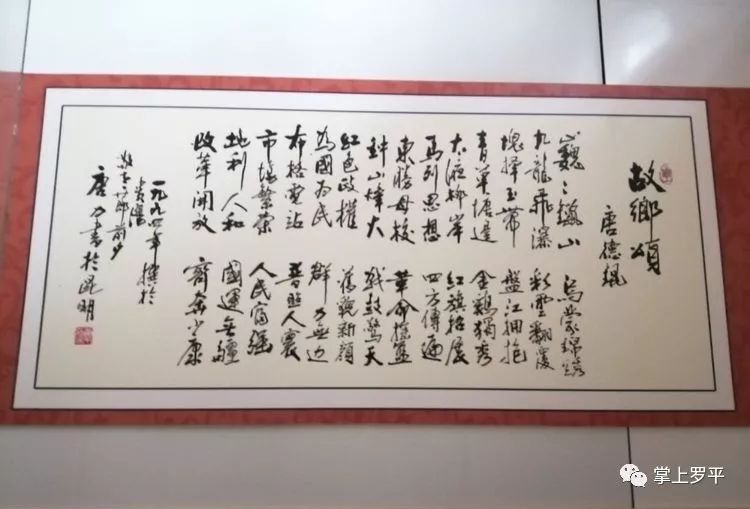 故鄉頌
唐德
巍々 山 烏蒙錦
九龍飛瀑 彩雲翻
塊擇玉帶 盤江拥抱
青草塘邊 金鷄獨秀
大渡柳岸 紅旗招展
馬列思想 四方傳遍
東勝母校 革命摇籃
鈡山烽火 战鼓驚天
紅色政權 舊貌新顔
為國为民 群力無边
布格電站 普照人寰
市場繁荣 人民富强
地利人和 國運無疆
改革開放 齊奔小康
一九九四年 撰於
贵陽
前夕
唐 书於昆明
掌上罗平